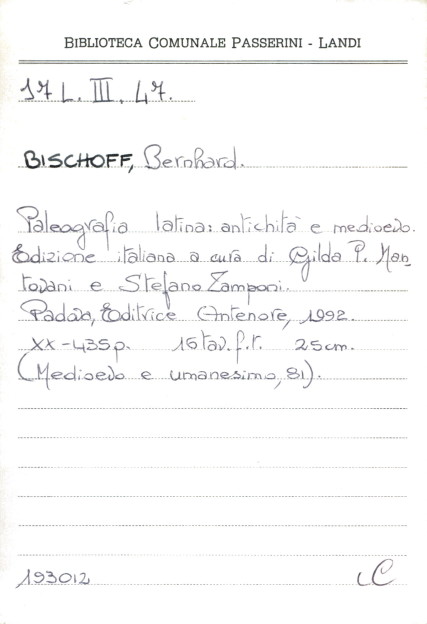 BIBLIOTECA COMUNALE PASSERINI - LANDI
17 L. III. 47.
BISCHOFF, Bernhard.
Paleografia latina: antichità e medioevo.
Edizione italiana a cura di Gilda P. Man
tovani e Stefano Zamponi.
Padova, Editrice Antenore, 1992.
XX-435p. 16 tav. f.t. 25cm.
(Medioevo e umanesimo, 81).
193012